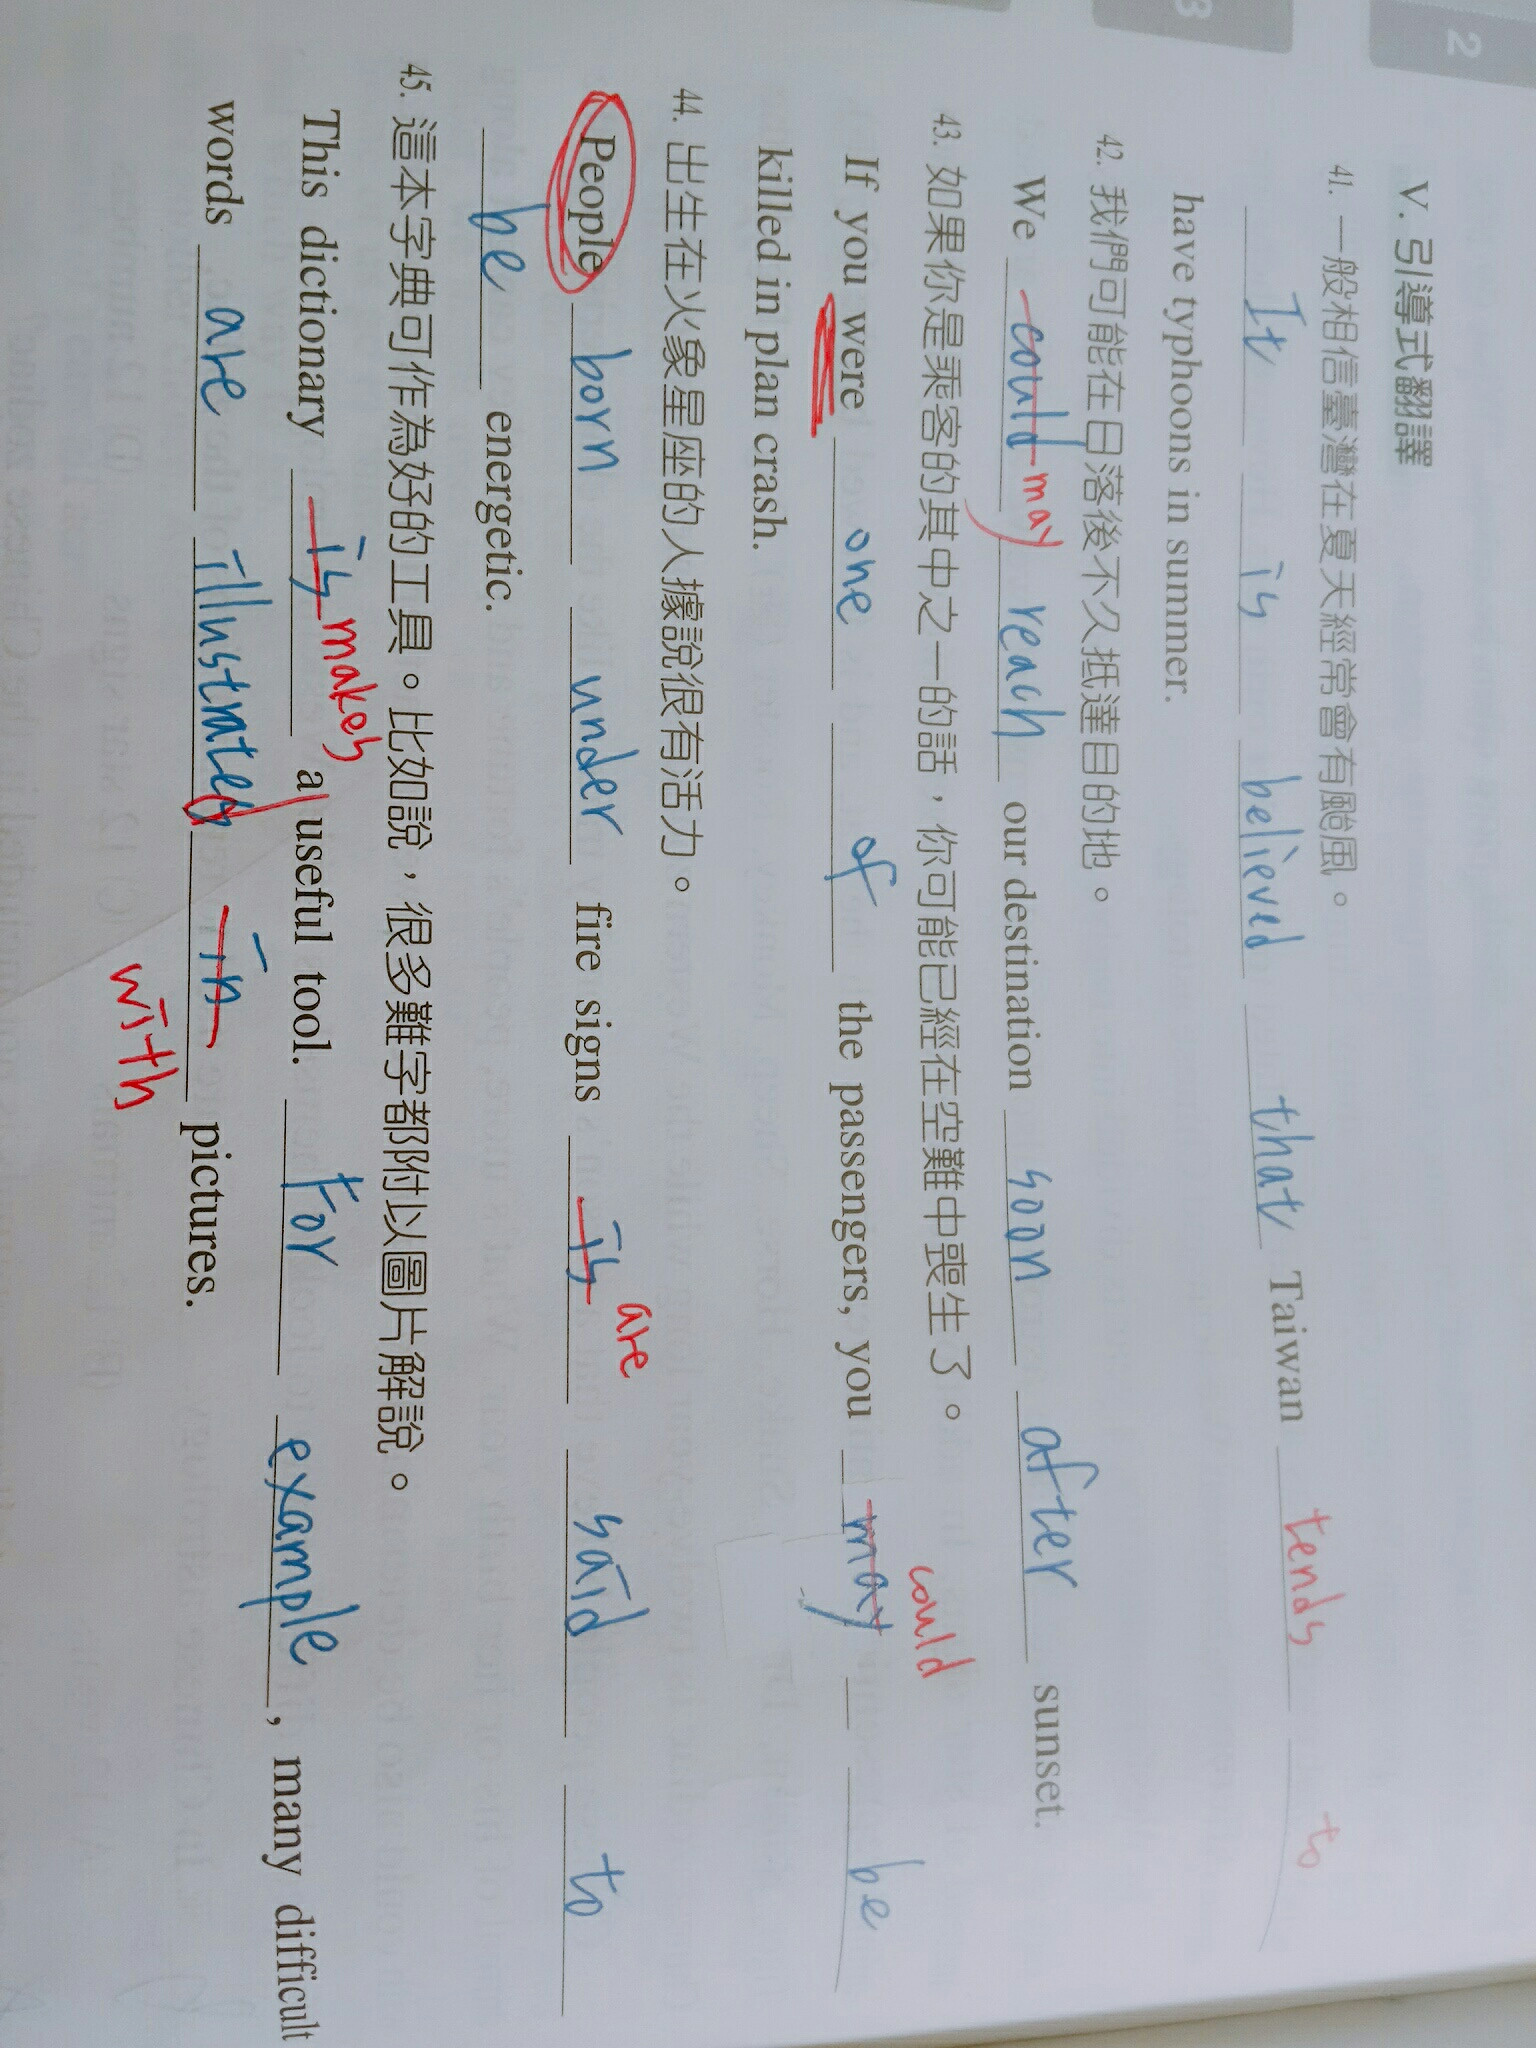 2
3
V. 引導式翻譯
41. 一般相信臺灣在夏天經常會有颱風。
It is believed that Taiwan tends to
have typhoons in summer.
42. 我們可能在日落後不久抵達目的地。
We could may reach our destination soon after sunset.
43. 如果你是乘客的其中之一的話，你可能已經在空難中喪生了。
If you were one of the passengers, you may could be
killed in plan crash.
44. 出生在火象星座的人據說很有活力。
People born under fire signs is are said to
be energetic.
45. 這本字典可作為好的工具。比如說，很多難字都附以圖片解說。
This dictionary is makes a useful tool. For example, many difficult
words are illustrated in with pictures.